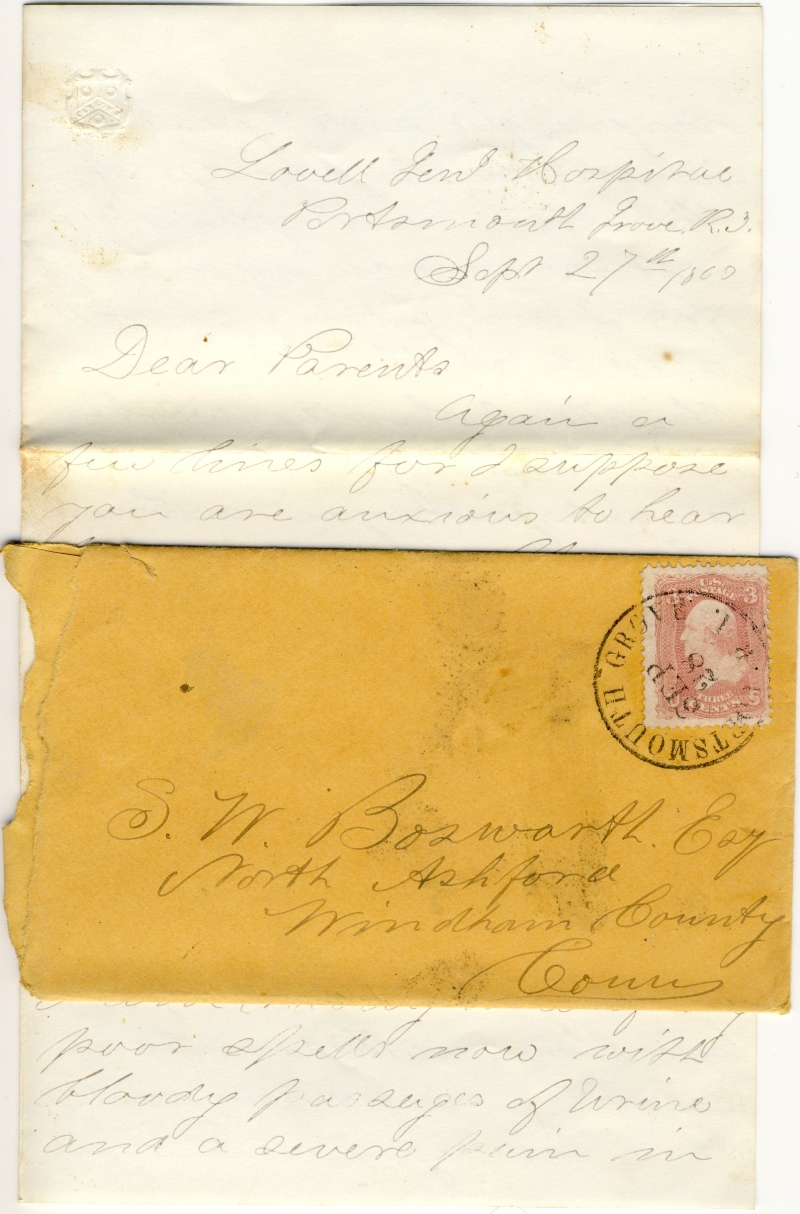 Lovell Genl Hospital
Portsmouth Grove R.I.
Sept 27th 186
Dear Parents
Again a
few lines for I suppose
you are anxious to hear
U.S. POSTAGE 3
THREE CENTS
PORTSMOUTH GROVE R.I.
SEP
28
S. W. Bosworth. Esq
North Ashford
Windham County
Conn
poor spells now with
bloody passages of Urine
and a severe pain in